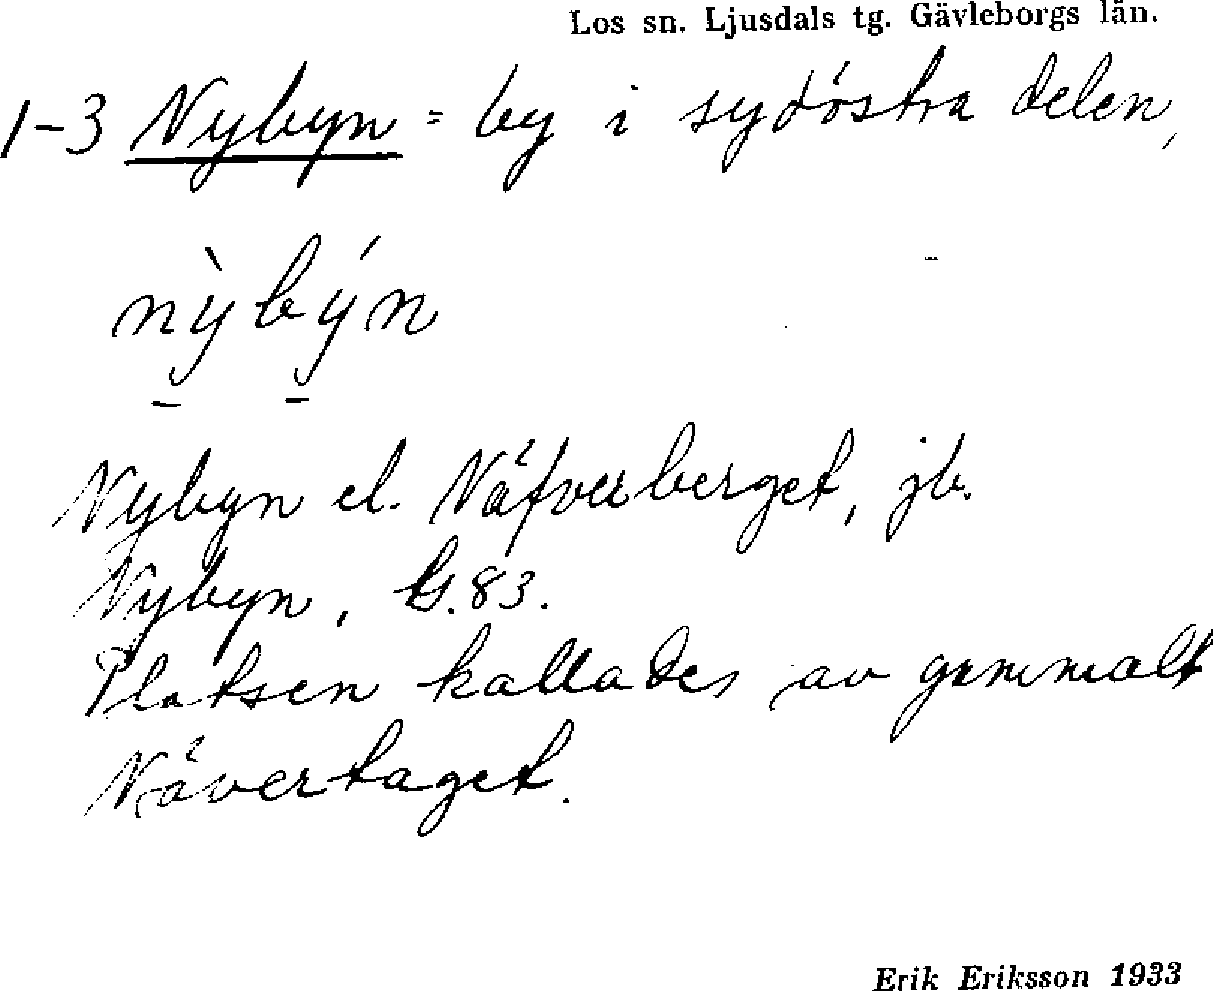 Los sn. Ljusdals tg. Gävleborgs län.
1-3 Nybyn = by i sydöstra delen,
nỳbýn
Nybyn el. Näfverberget, jb.
Nybyn, G.83.
Platsen kallades av gammalt
Nävertaget.
Erik Eriksson 1933